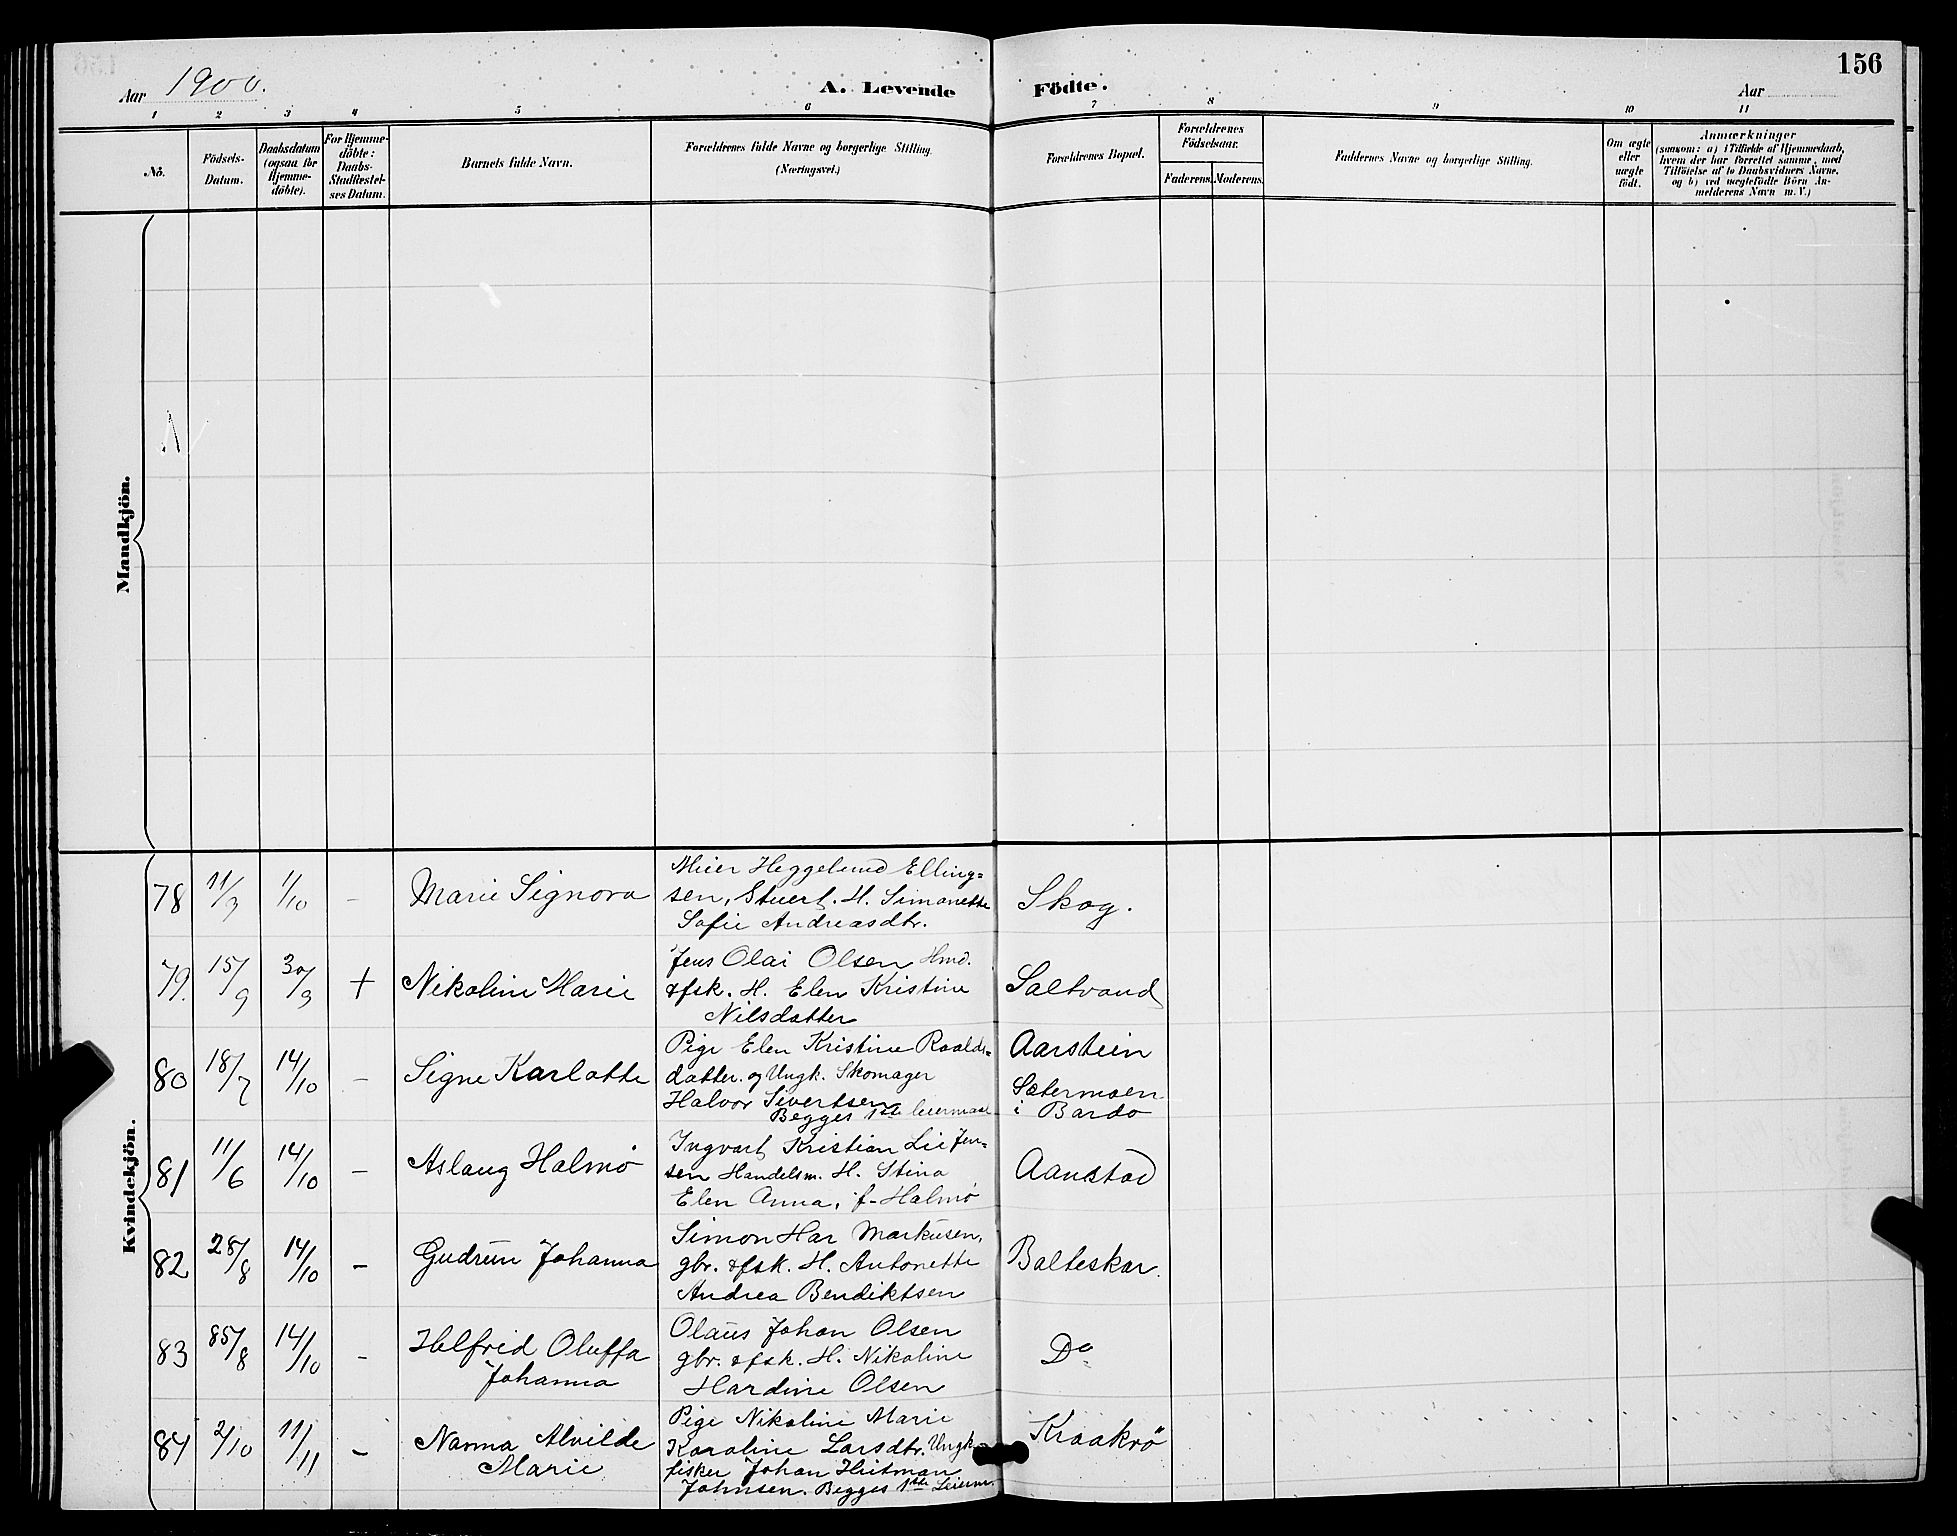 156
Aar 1900.
A. Levende Födte.
Aar
1 2 3 4 5 6 7 8 9 10 11
No.
Födsels-
Datum.
Daabsdatum
(ogsaa for
Hjemme-
döbte).
For Hjemme-
döbte:
Daabs-
Stadfestel-
ses Datum.
Barnets fulde Navn.
Forældrenes fulde Navne og borgerlige Stilling.
(Næringsvei.)
Forældrenes Bopæl.
Forældrenes
Födselsaar.
Faderens. Moderens.
Faddernes Navne og borgerlige Stilling.
Om ægte
eller
uægte
födt.
Anmærkninger
(saasom: a) i Tilfælde af Hjemmedaab,
hvem der har forrettet samme, med
Tilföielse af to Daabsvidners Navne,
og b) ved uægtefödte Börn An-
melderens Navn m. V.)
Mandkjön.
Kvindekjön.
78 11/9 1/10 - Marie Signora
Meier Heggelund Elling=
sen, Stuert. H. Simonette
Sofie Andreasdtr.
Skog.
79. 15/9 30/9 + Nikoline Marie
Jens Olai Olsen Hmd.
& fsk. H. Elen Kristine
Nilsdatter
Saltvand
80 18/7 14/10 - Signe Karlotte
Pige Elen Kristine Roalds=
datter. og Ungk. Skomager
Halvor Sivertsen
Begges 1ste leiermaal
Aarstein
Sætermoen
i Bardo
81 11/6 14/10 - Aslaug Halmö
Ingvart Kristian Lie Jen=
sen Handelsm. H. Stina
Elen Anna, f- Halmö
Aanstad
82 28/8 14/10 - Gudrun Johanna
Simon Har Markusen,
gbr. & fsk. H. Antonette
Andrea Bendiktsen
Balteskar.
83 25/8 14/10 - Helfrid Oluffa
Johanna
Olaus Johan Olsen
gbr. & fsk. H. Nikoline
Hardine Olsen
Do
84 2/10 11/11 - Nanna Alvilde
Marie
Pige Nikoline Marie
Karoline Larsdtr. Ungk.
fisker Johan Hutman
Johnsen. Begges 1ste Leierm.
Kraakrö